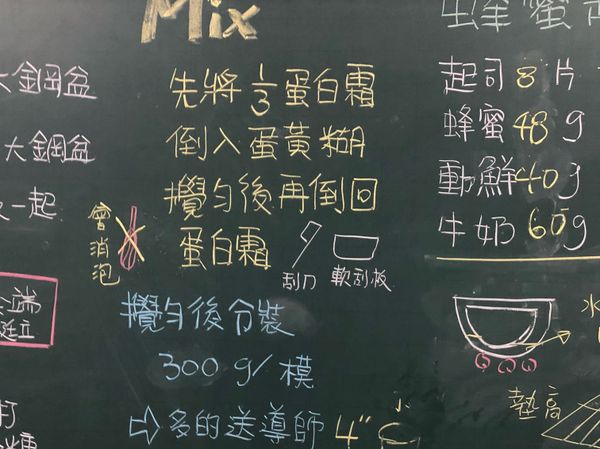 Mix
蜂蜜
大鋼盆
大鋼盆
一起
先將1/3蛋白霜
倒入蛋黃糊
攪勻後再倒回
蛋白霜
會消泡
刮刀
軟刮板
攪勻後分裝
300g/模
⇨多的送導師 4"
起司8片
蜂蜜48g
動鮮40g
牛奶60g
水
墊高
端
打